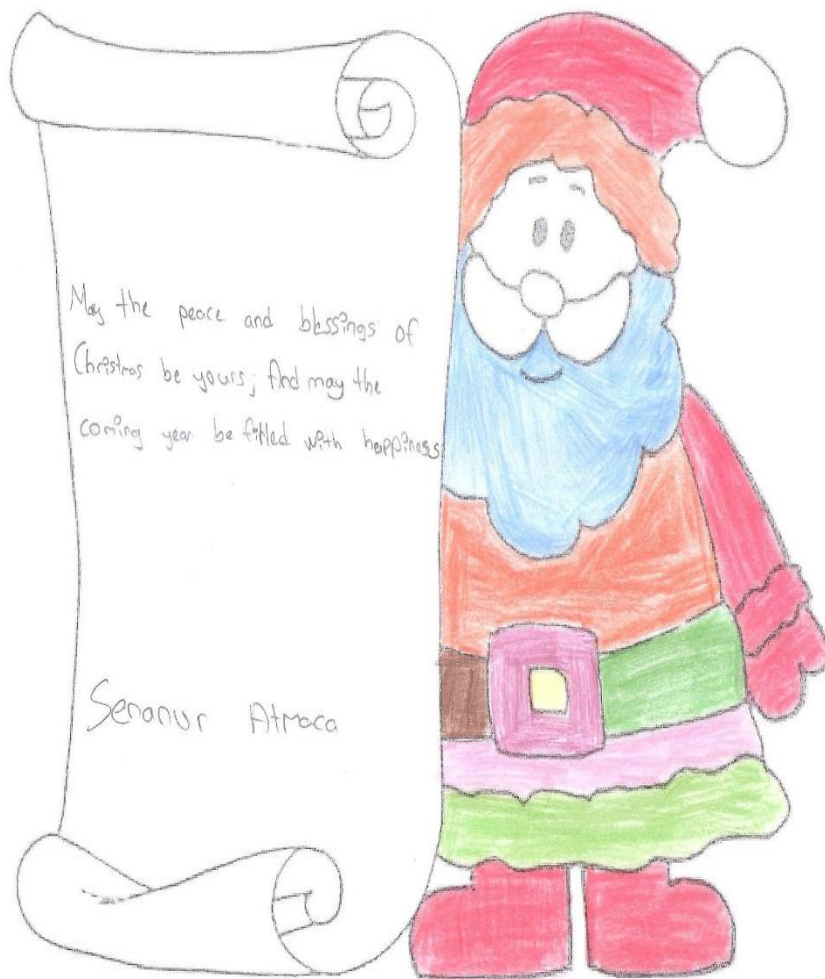 May the peace and blessings of
Christmas be yours; And may the
coming year be filled with happiness
Senanur Atmaca